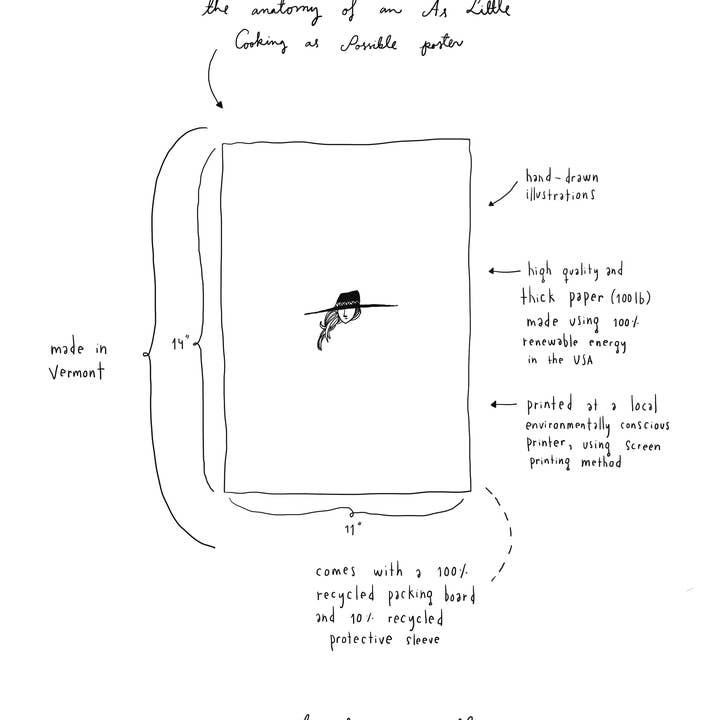 the anatomy of an As Little
Cooking as Possible poster
hand-drawn
illustrations
high quality and
thick paper (100lb)
made using 100%
renewable energy
in the USA
14"
made in
Vermont
printed at a local
environmentally conscious
printer, using screen
printing method
11"
comes with a 100%
recycled packing board
and 10% recycled
protective sleeve